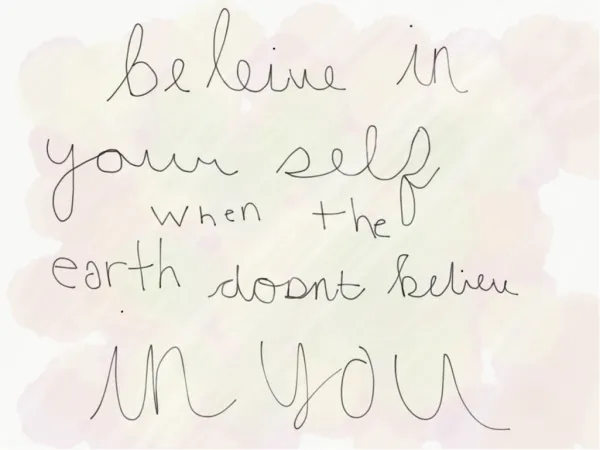 beleive in
your self
when the
earth dosnt believe
in you